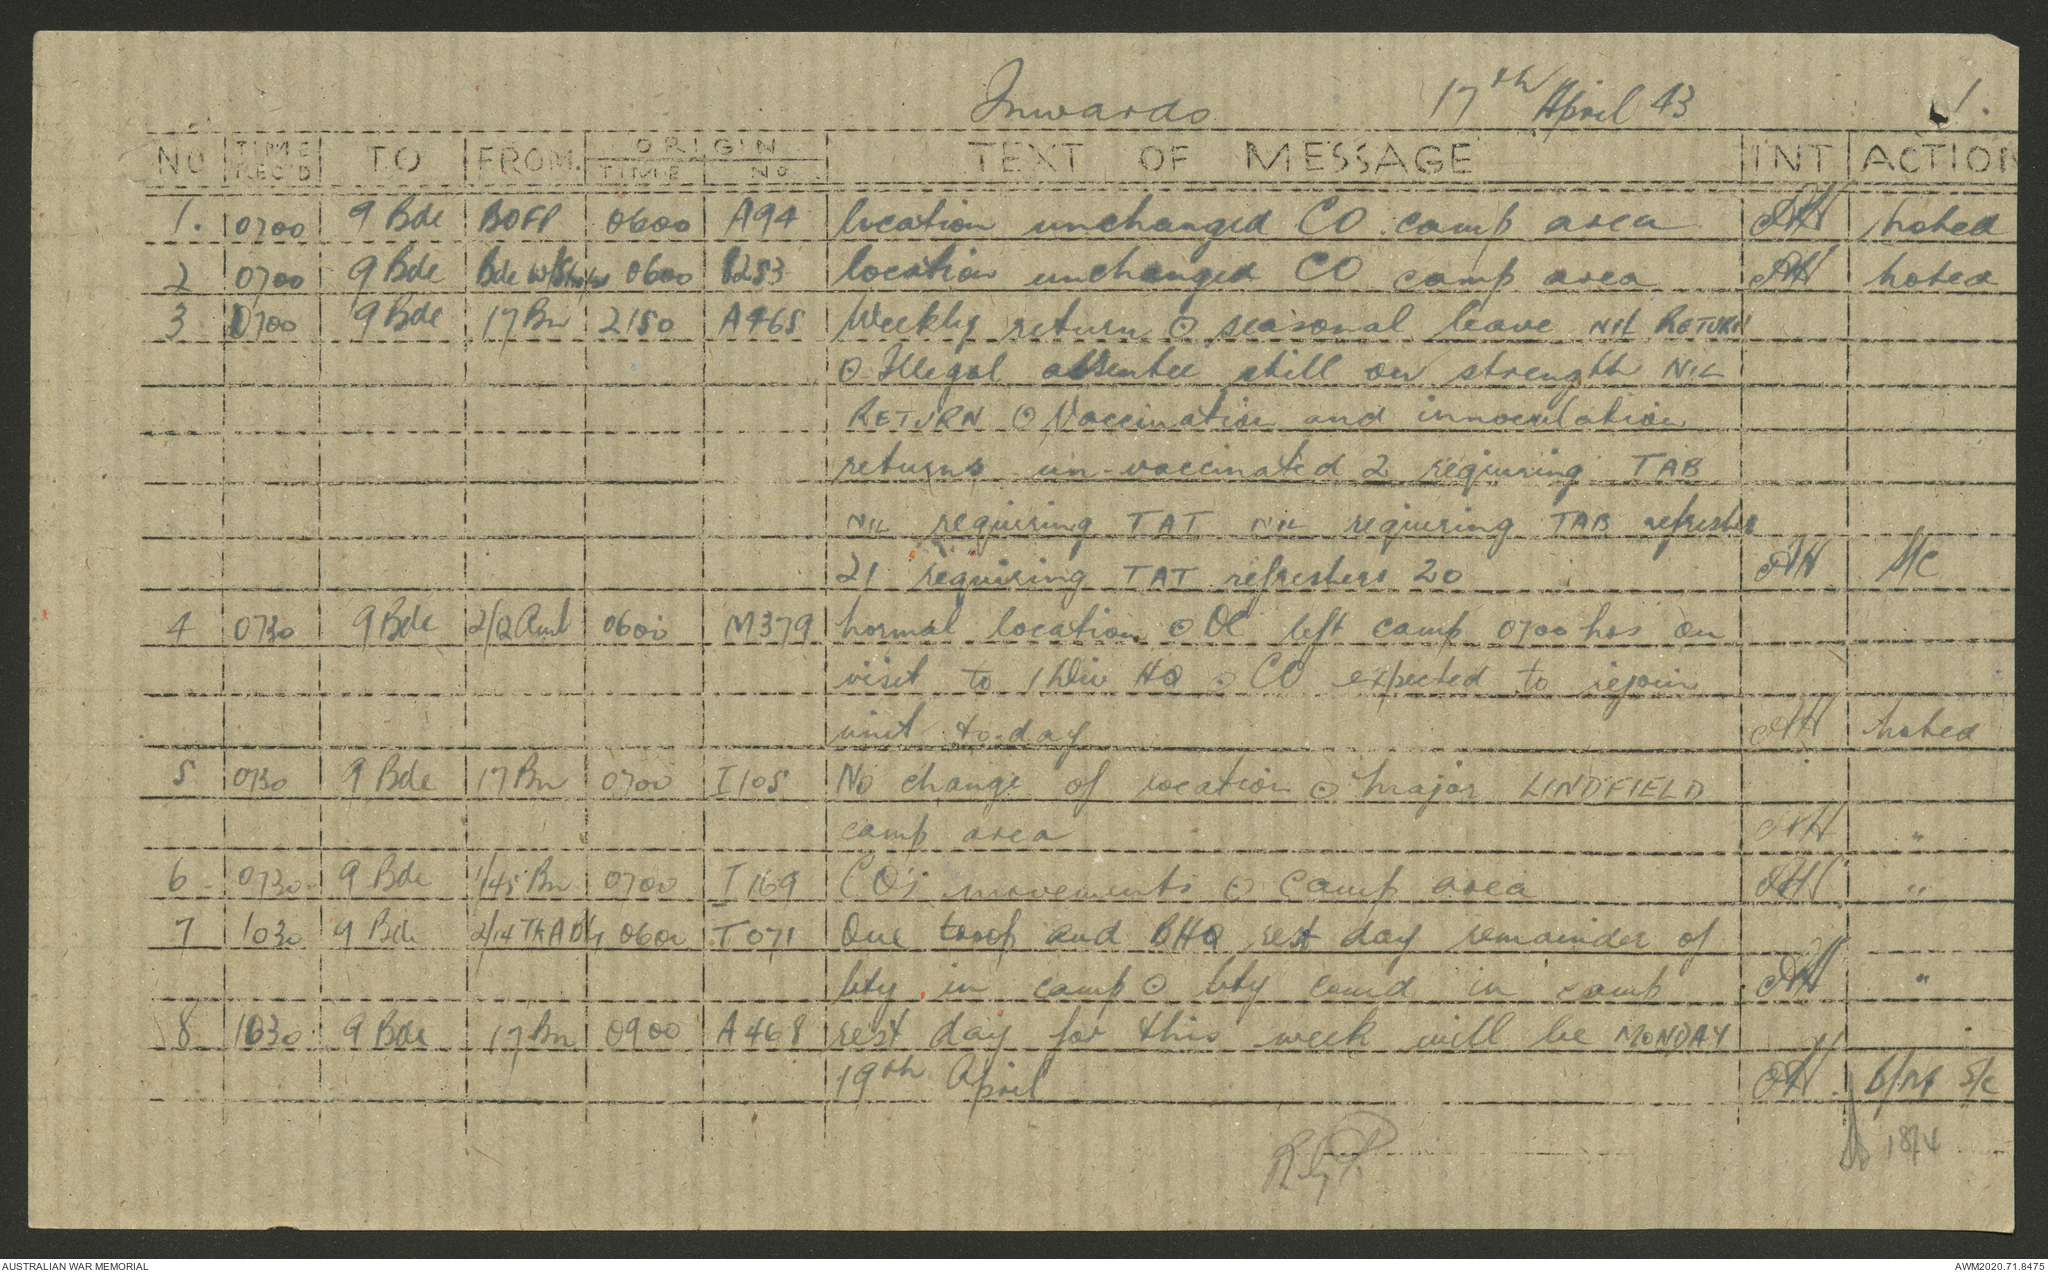 Inwards 17th April 43 1.
NO TIME REC'D TO FROM. ORIGIN TIME NO. TEXT OF MESSAGE INT ACTION
1. 0700 9 Bde BOFP 0600 A94 location unchanged CO camp area noted
2 0700 9 Bde Bde 0600 location unchanged CO camp area noted
3 0700 9 Bde 17 Bn 2150 A465 Weekly return ⊙ seasonal leave NIL RETURN
⊙ Illegal absentee still on strength NIL
RETURN ⊙ Vaccination and innoculation
returns un-vaccinated 2 requiring TAB
NIL requiring TAT NIL requiring TAB refreshers
21 requiring TAT refreshers 20 S/C
4 0730 9 Bde 2/12 Amb 0600 M379 normal location ⊙ OC left camp 0700 hrs on
visit to 1 Div HQ ⊙ CO expected to rejoin
unit to-day noted
5 0730 9 Bde 17 Bn 0700 I105 No change of location ⊙ Major LINDFIELD
camp area "
6 0730 9 Bde 1/45 Bn 0700 I169 CO's movements ⊙ Camp area "
7 1030 9 Bde 0600 T071 One troop and BHQ rest day remainder of
bty in camp ⊙ bty comd in camp "
8 1030 9 Bde 17 Bn 0900 A468 rest day for this week will be MONDAY
19th April S/C
18/4